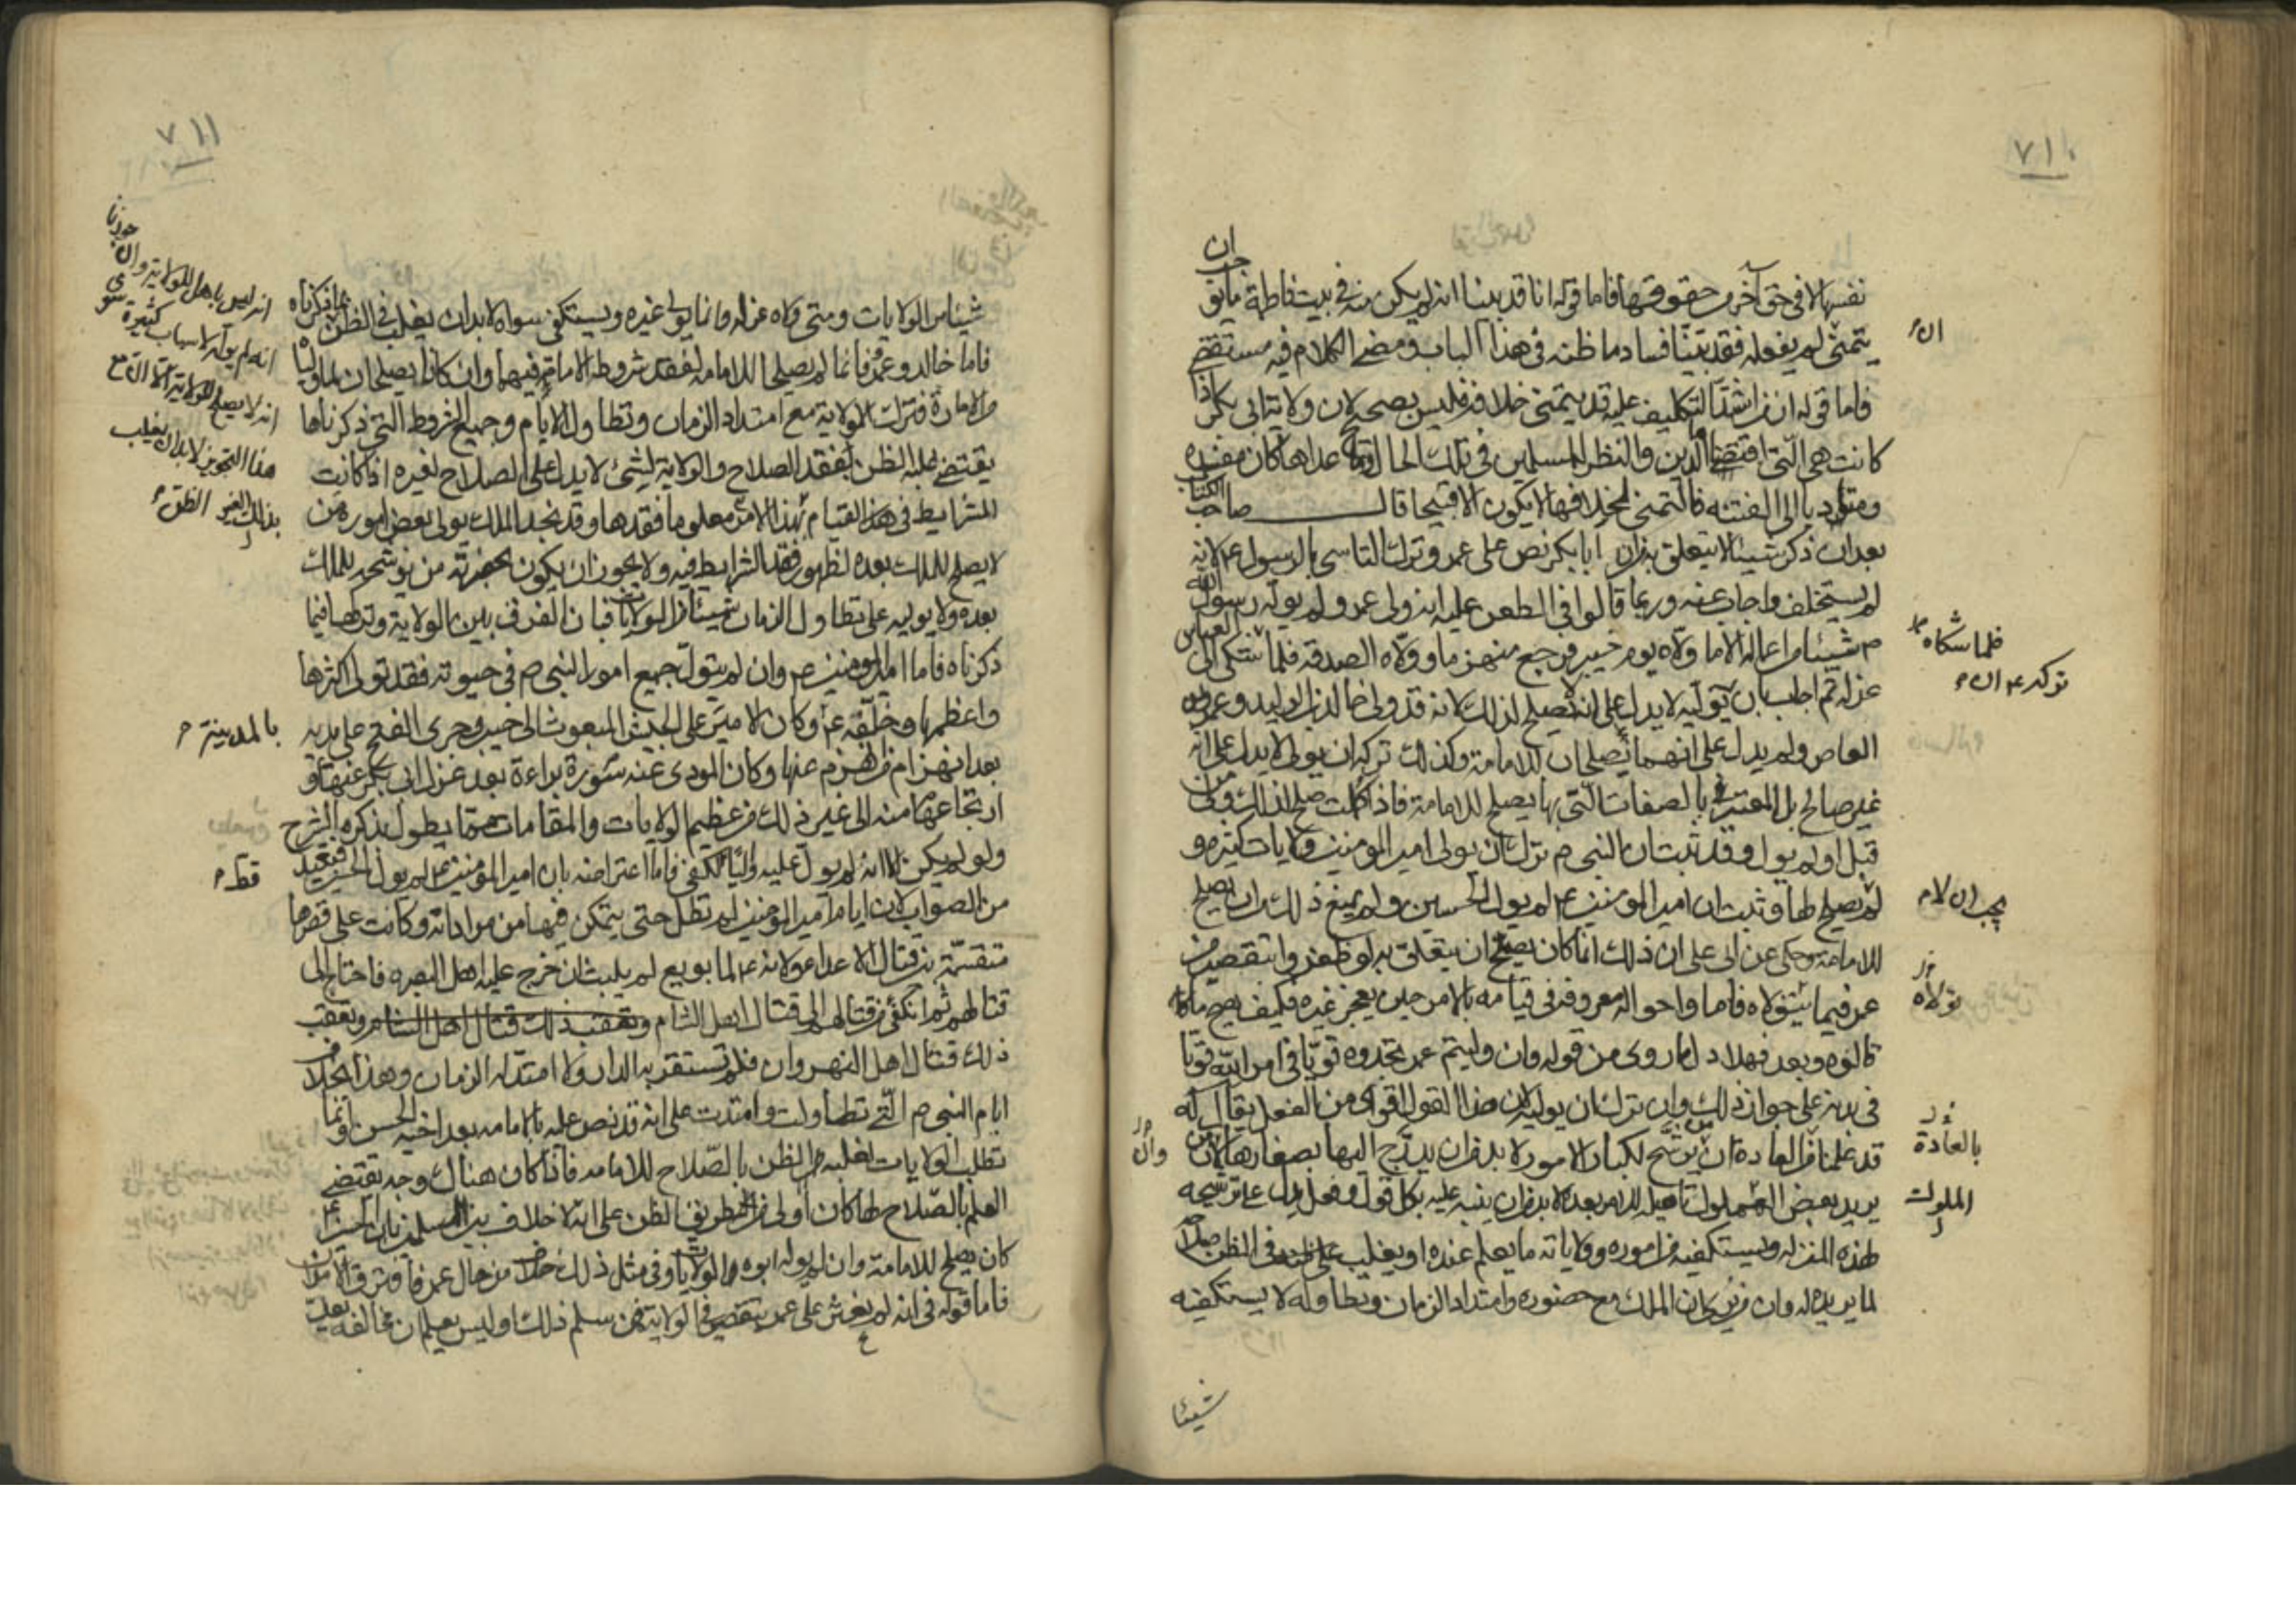 ٧١٠
نفسها لا في حق آخر و حقوقها فاما قوله انا قد بينا انه لم يكن منه في بيت فاطمة ما يوجب ان
يتمنى لم يفعله فقد بينا فساد ما ظنه في هذا الباب و مضى الكلام فيه مستقصى
فاما قوله ان من اشتد التكليف عليه قد يتمنى خلافه فليس بصحيح لان ولاية ابي بكر اذا
كانت هي التي اقتضاها الدين والنظر للمسلمين في تلك الحال وما عداها كان مفسدة
ومؤديا الى الفتنة فالتمنى لخلافها لا يكون الا قبيحا قال صاحب الكتاب
بعد ان ذكر شيئا لا يتعلق به من ان ابا بكر نص على عمر وترك التاسي بالرسول ع لانه
لم يستخلف واجاب عنه وربما قالوا في الطعن عليه انه ولى عمر ولم يوله رسول الله
ص شيئا من اعماله الا ما ولاه يوم خيبر فرجع منهزما وولاه الصدقة فلما شكى العباس
عزله ثم اجاب بان توليه لا يدل على انه يصلح لذلك لانه قد ولى خالد بن الوليد وعمرو بن
العاص ولم يدل على انهما يصلحان للامامة وكذلك تركه ان يولى لا يدل على انه
غير صالح بل المعتبر بالصفات التي بها يصلح للامامة فاذا كملت صلح لذلك ولى من
قبل او لم يول وقد ثبت ان النبي ص ترك ان يولى امير المومنين ولايات كثيرة و
لم يصلح لها وثبت ان امير المومنين ع لم يول الحسين ولم يمنع ذلك من ان يصلح
للامامة وحكى عن ابي على ان ذلك انما كان يصلح ان يتعلق به لو ظفروا بتقصير من
عمر فيما يتولاه فاما واحواله معروفة في قيامه بالامر حين يعجز غيره فكيف يصح ما
قالوه وبعد فهلا دل ما روى من قوله وان وليتم عمر تجدوه قويا في امر الله قويا
في بدنه على جواز ذلك وان ترك ان يوليه لان هذا القول اقوى من الفعل يقال له
قد علمنا من العادة ان من يرشح لكبار الامور لا بد من ان يدرج اليها بصغارها لان من
يريد بعض الملوك تاهيله للامر بعده لا بد من ان ينبه عليه بكل قول وفعل يدل على ترشيحه
لهذه المنزلة ويستكفيه من اموره وولاياته ما يعلم عنده او يغلب على في الظن صلاحه
لما يريده له وان من يرى ان الملك مع حضوره وامتداد الزمان وتطاوله لا يستكفيه
شيئا
ان
فلما شكاه
تركه ع ان
يجب ان لا
تولاه
بالعادة
وان
الملوك
٧١١
شيئا من الولايات ومتى ولاه عزله وانما يولى غيره ويستكفى سواه لا بد ان يغلب في الظن بما ذكرناه
فاما خالد وعمرو فانما لم يصلحا للامامة لفقد شروط الامامة فيهما وان كانا يصلحان لما وليا
من الامارة فترك الولاية مع امتداد الزمان وتطاول الايام وجميع الشروط التي ذكرناها
يقتضي غلبة الظن لفقد الصلاح والولاية لشئ لا يدل على الصلاح لغيره اذا كانت
الشرايط في هذا القيام بهذا الامر معلوما فقدها وقد نجد الملك يولى بعض اموره من
لا يصلح للملك بعده لظهور فقد الشرايط فيه ولا يجوز ان يكون بحضرته من يرشحه للملك
بعده ولا يوليه على تطاول الزمان شيئا من الولايات فبان الفرق بين الولاية وتركها فيما
ذكرناه فاما امير المومنين ع وان لم يتول جميع امور النبي ص في حيوته فقد تولى اكثرها
واعظمها وخلفه ع وكان الامير على الجيش المبعوث الى خيبر وجرى الفتح على يديه
بعد انهزام من انهزم عنها وكان المودى عنه سورة براءة بعد عزل ابي بكر عنها و
ارتجاعها منه الى غير ذلك من عظيم الولايات والمقامات مما يطول بذكره الشرح
ولو لم يكن الا انه لم يول عليه واليا لكفى فاما اعتراضه بان امير المومنين ع لم يول الحسين فبعيد
من الصواب لان ايام امير المومنين لم تطل حتى يتمكن فيها من مراداته وكانت على قصرها
متقسمة بين قتال الاعداء ولانه ع لما بويع لم يلبث ان خرج عليه اهل البصره فاحتاج الى
قتالهم ثم انكفى من قتالهم الى قتال اهل الشام وتعقب ذلك قتال اهل الشام وتعقب
ذلك قتال اهل النهروان فلم تستقر به الدار ولا امتد له الزمان وهذا بخلاف
ايام النبي ص التي تطاولت وامتدت على انه قد نص عليه بالامامه بعد اخيه الحسن وانما
تطلب الولايات لغلبة الظن بالصلاح للامامه فاذا كان هناك وجه يقتضي
العلم بالصلاح لها كان اولى من طريق الظن على انه لا خلاف بين المسلمين بان الحسين ع
كان يصلح للامامة وان لم يوله ابوه الولايات وفي مثل ذلك خلاف من حال عمر فافترق الامران
فاما قوله في انه لم يعثر على عمر بتقصير في الولاية فمن سلم ذلك اوليس يعلم ان مخالفه يعد
انه ليس باهل للولاية وان جوزنا
انه لم يوله لاسباب كثيرة سوى
انه لا يصلح للولاية الا ان مع
هذا التجويز لا بد ان يغلب
الظن
بالمدينة
قط